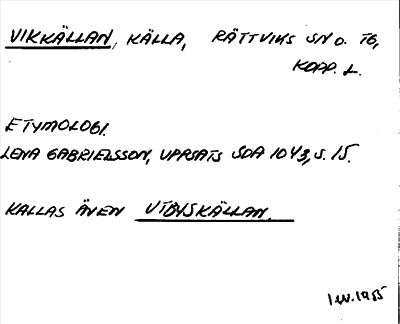 VIKKÄLLAN, KÄLLA, RÄTTVIKS SN O. TG,
KOPP. L.
ETYMOLOGI.
LENA GABRIELSSON, UPPSATS SOA 1043, S. 15.
KALLAS ÄVEN UTBYSKÄLLAN.
1985